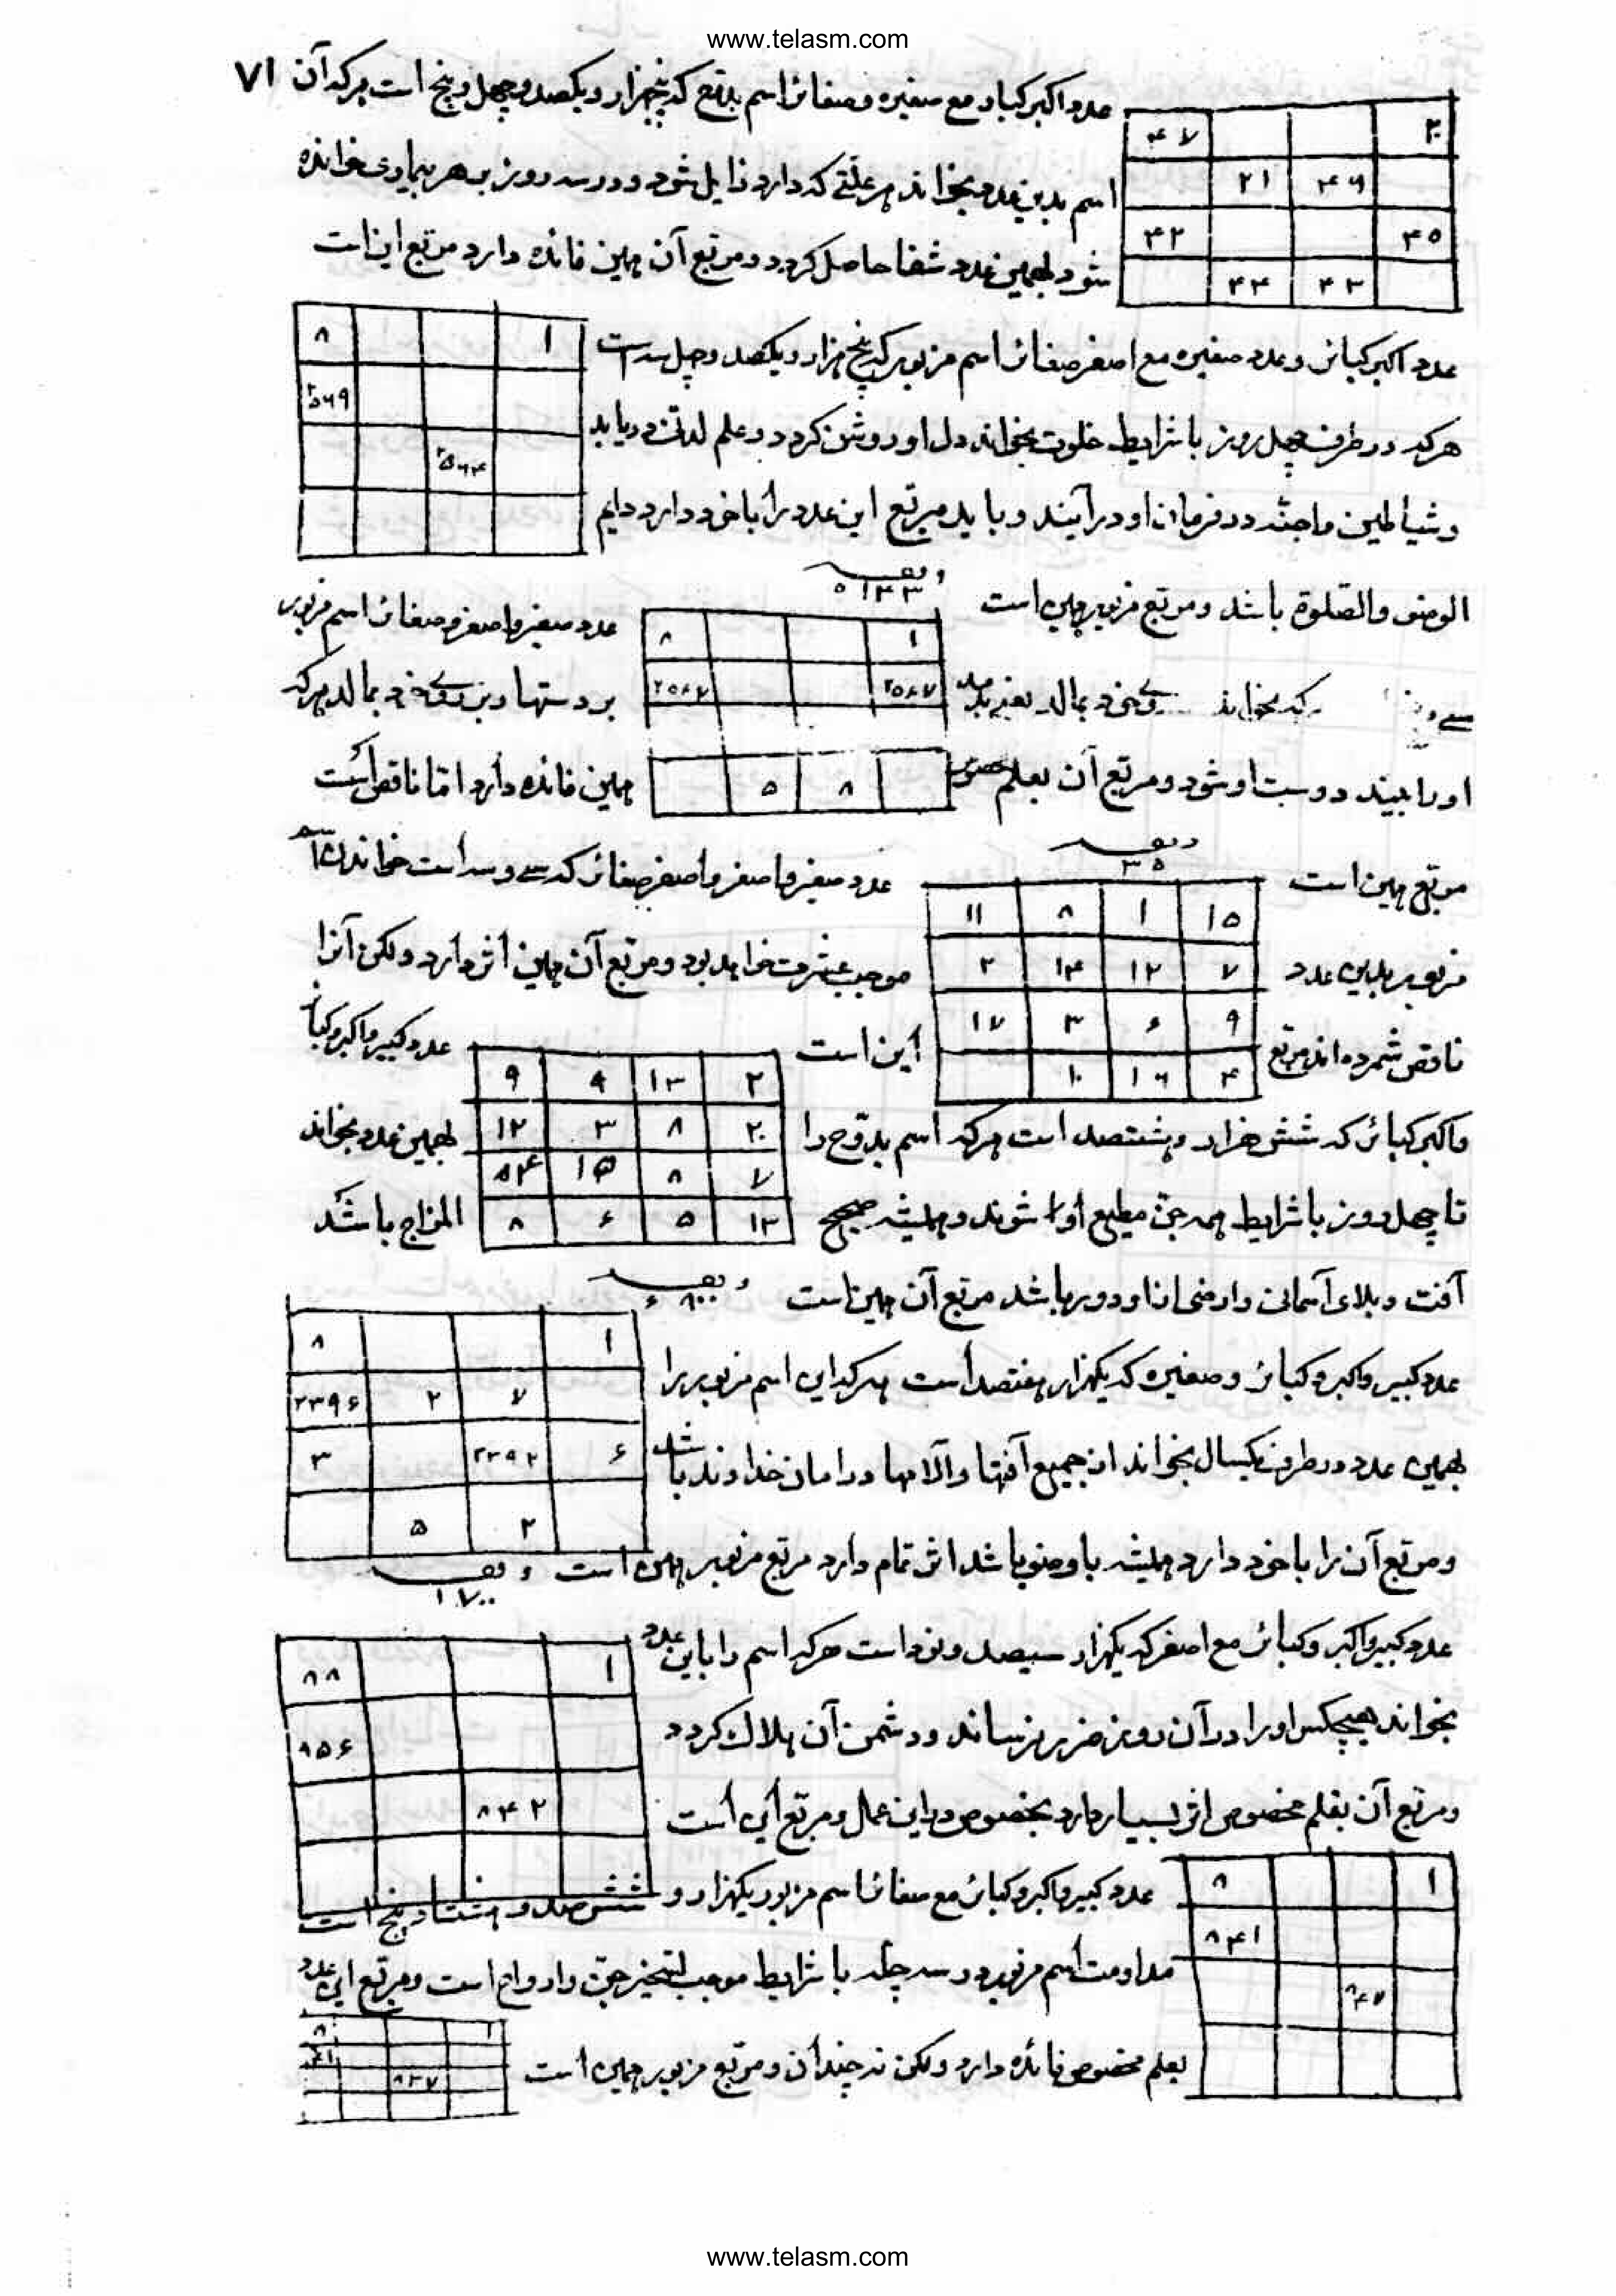 www.telasm.com
عدد اکبر کبار مع صغیره و صغائر اسم بدوح که پنجهزار و یکصد و چهل و پنج است هرکه آن ۷۱
اسم بدین عدد بخواند هر علتی که دارد زایل شود و در سه روز بر هر بیماری خوانده
شود بهمین عدد شفا حاصل کردد و مربع آن همین فائده دارد مربع این است
۴۷ ۲۰
۲۱ ۴۶
۴۲ ۴۵
۴۴ ۴۳
عدد اکبر کبائر و عدد صغیره مع اصغر صغائر اسم مزبور که پنج هزار و یکصد و چهل سه است
هرکه در طرف چهل روز با شرایط خلوت بخواند دل او روشن کردد و علم لدنی دریابد
و شیاطین و اجنه در فرمان او درآیند و باید مربع این عدد را با خود دارد دایم
۸ ۱
۲۵۶۹
۲۵۶۴
الوضو والصلوة باشد و مربع مزبور همین است
۵۱۳۳
عدد صغیر و اصغر و صغائر اسم مزبور
۸ ۱
۲۵۶۲ ۲۵۶۷
که بخواند
بر دستها و بر روی خود بمالد هرکه
او را ببیند دوست او شود و مربع آن بعلم
۵ ۸
همین فائده دارد اما ناقص است
مربع همین است
۳۵
عدد صغیر و اصغر و اصغر صغائر که سی و سه است خواندن اسم
۱۱ ۸ ۱ ۱۵
۲ ۱۴ ۱۲ ۷
۱۷ ۳ ۶ ۹
۱۰ ۱۶ ۴
مزبور بدین عدد
موجب عشرت خواهد بود و مربع آن همین اثر دارد ولکن آنرا
ناقص شمرده اند مربع
این است
عدد کبیر و اکبر و کبائر
۹ ۴ ۱۳ ۲
۱۲ ۳ ۸ ۲۰
۸۴ ۱۵ ۸ ۷
۸ ۶ ۵ ۱۳
و اکبر کبائر که شش هزار و هشتصد است هرکه اسم بدوح را
بهمین عدد بخواند
تا چهل روز با شرایط همه جن مطیع او شوند و همیشه صحیح
المزاج باشد
آفت و بلای آسمانی و ارضی از او دور باشد مربع آن همین است
۶۸۰۰
۸ ۱
۳۳۹۶ ۲ ۷
۳ ۳۳۹۲ ۶
۵ ۲
عدد کبیر و اکبر و کبائر و صغیره که یکهزار هفتصد است هرکه این اسم مزبور را
بهمین عدد در طرف یکسال بخواند از جمیع آفتها و آلامها در امان خداوند باشد
و مربع آن را با خود دارد همیشه با وضو باشد اثر تمام دارد مربع مزبور همین است
۱۷۰۰
عدد کبیر و اکبر و کبائر مع اصغر که یکهزار سیصد و نود است هرکه اسم را باین عدد
بخواند هیچکس او را در آن روز ضرر نرساند و دشمن آن هلاک کردد
و مربع آن بقلم مخصوص اثر بسیار دارد بخصوص در این عمال و مربع این است
۸۸ ۱
۸۵۶
۸۴۲
عدد کبیر و اکبر و کبائر مع صغائر اسم مزبور یکهزار و ششصد و هشتاد پنج است
مداومت اسم مزبور در سه چله با شرایط موجب تسخیر جن و ارواح است و مربع این عدد
بعلم مخصوص فائده دارد ولکن نه چندان و مربع مزبور همین است
۸ ۱
۸۴۱
۸۴۷
۸ ۱
۴۱
۸۳۷
www.telasm.com